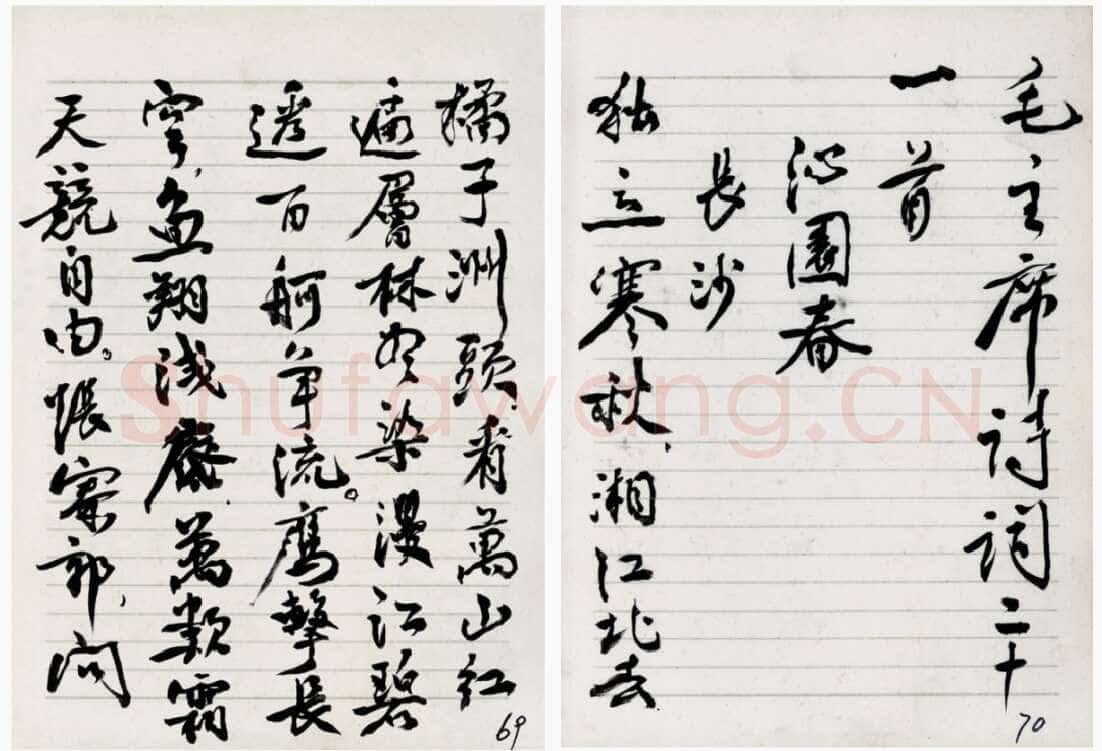 毛主席诗词二十
一首
沁園春
長沙
独立寒秋，湘江北去
70
橘子洲頭，看萬山红
遍層林尽染漫江碧
透百舸争流。鹰擊長
空，鱼翔浅底，萬類霜
天競自由。怅寥郭，問
69
Shufawang.CN